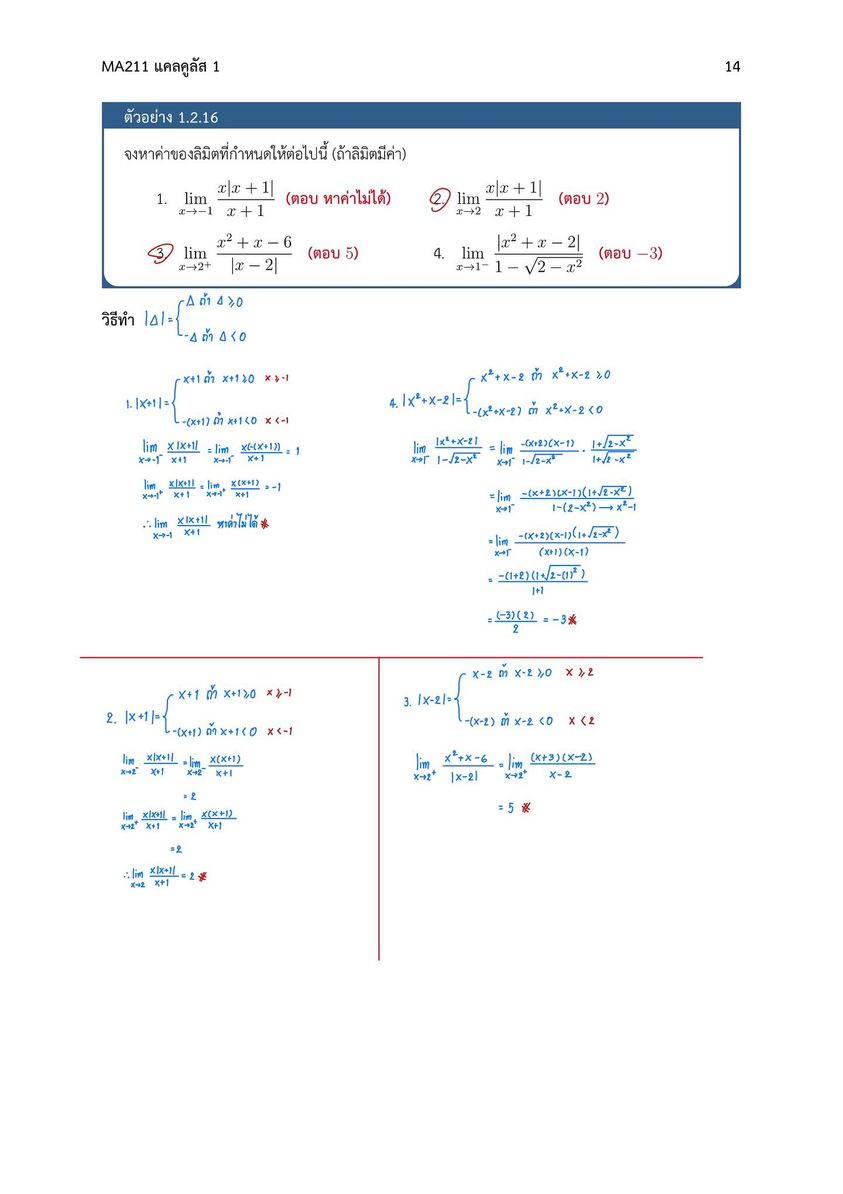 MA211 แคลคูลัส 1 14
ตัวอย่าง 1.2.16
จงหาค่าของลิมิตที่กำหนดให้ต่อไปนี้ (ถ้าลิมิตมีค่า)
1. lim x→−1 x|x + 1| / x + 1 (ตอบ หาค่าไม่ได้) 2. lim x→2 x|x + 1| / x + 1 (ตอบ 2)
3. lim x→2⁺ x² + x − 6 / |x − 2| (ตอบ 5) 4. lim x→1⁻ |x² + x − 2| / 1 − √(2 − x²) (ตอบ −3)
วิธีทำ |Δ| = { Δ ถ้า Δ ≥ 0
-Δ ถ้า Δ < 0
1. |x+1| = { x+1 ถ้า x+1 ≥ 0 x ≥ -1
-(x+1) ถ้า x+1 < 0 x < -1
lim x→-1⁻ x|x+1| / x+1 = lim x→-1⁻ x(-(x+1)) / x+1 = 1
lim x→-1⁺ x|x+1| / x+1 = lim x→-1⁺ x(x+1) / x+1 = -1
∴ lim x→-1 x|x+1| / x+1 หาค่าไม่ได้ *
4. |x²+x-2| = { x²+x-2 ถ้า x²+x-2 ≥ 0
-(x²+x-2) ถ้า x²+x-2 < 0
lim x→1⁻ |x²+x-2| / 1-√2-x² = lim x→1⁻ -(x+2)(x-1) / 1-√2-x² · 1+√2-x² / 1+√2-x²
= lim x→1⁻ -(x+2)(x-1)(1+√2-x²) / 1-(2-x²) → x²-1
= lim x→1⁻ -(x+2)(x-1)(1+√2-x²) / (x+1)(x-1)
= -(1+2)(1+√2-(1)²) / 1+1
= (-3)(2) / 2 = -3 *
2. |x+1| = { x+1 ถ้า x+1 ≥ 0 x ≥ -1
-(x+1) ถ้า x+1 < 0 x < -1
lim x→2⁻ x|x+1| / x+1 = lim x→2⁻ x(x+1) / x+1
= 2
lim x→2⁺ x|x+1| / x+1 = lim x→2⁺ x(x+1) / x+1
= 2
∴ lim x→2 x|x+1| / x+1 = 2 *
3. |x-2| = { x-2 ถ้า x-2 ≥ 0 x ≥ 2
-(x-2) ถ้า x-2 < 0 x < 2
lim x→2⁺ x²+x-6 / |x-2| = lim x→2⁺ (x+3)(x-2) / x-2
= 5 *